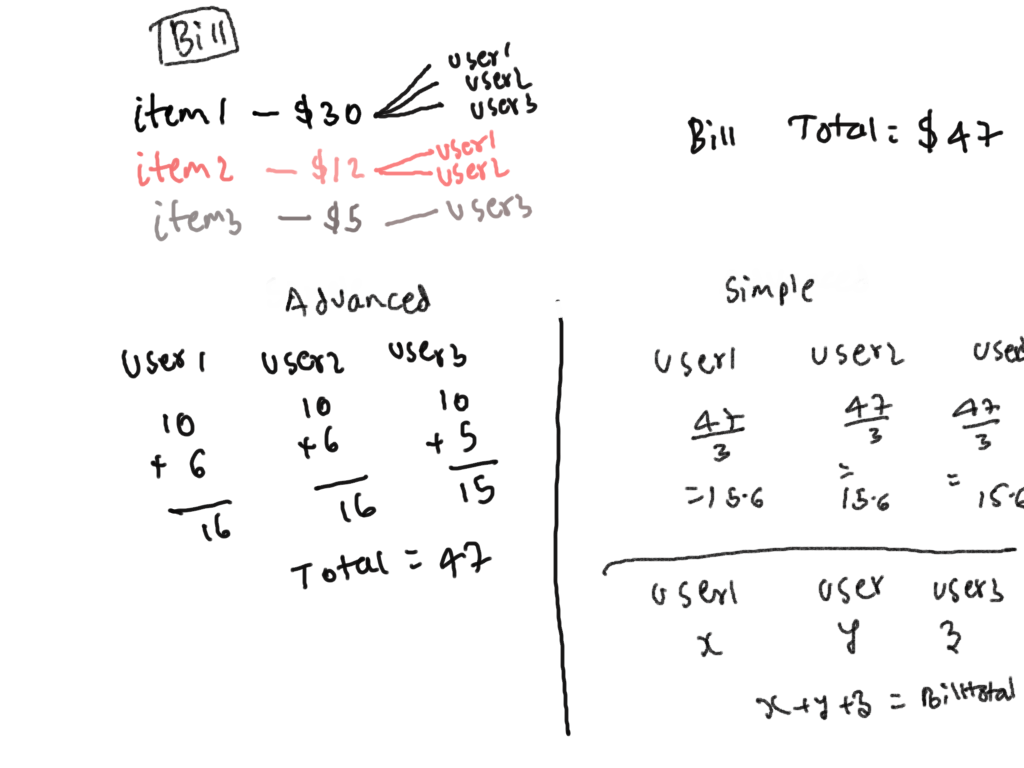 Bill
item1 — $30
user1
user2
user3
item2 — $12
user1
user2
item3 — $5 — user3
Bill Total: $47
Advanced
user1 user2 user3
10 10 10
+ 6 +6 + 5
16 16 15
Total = 47
Simple
user1 user2 user3
47/3 47/3 47/3
=15.6 = 15.6 = 15.6
user1 user user3
x y z
x+y+z = Billtotal